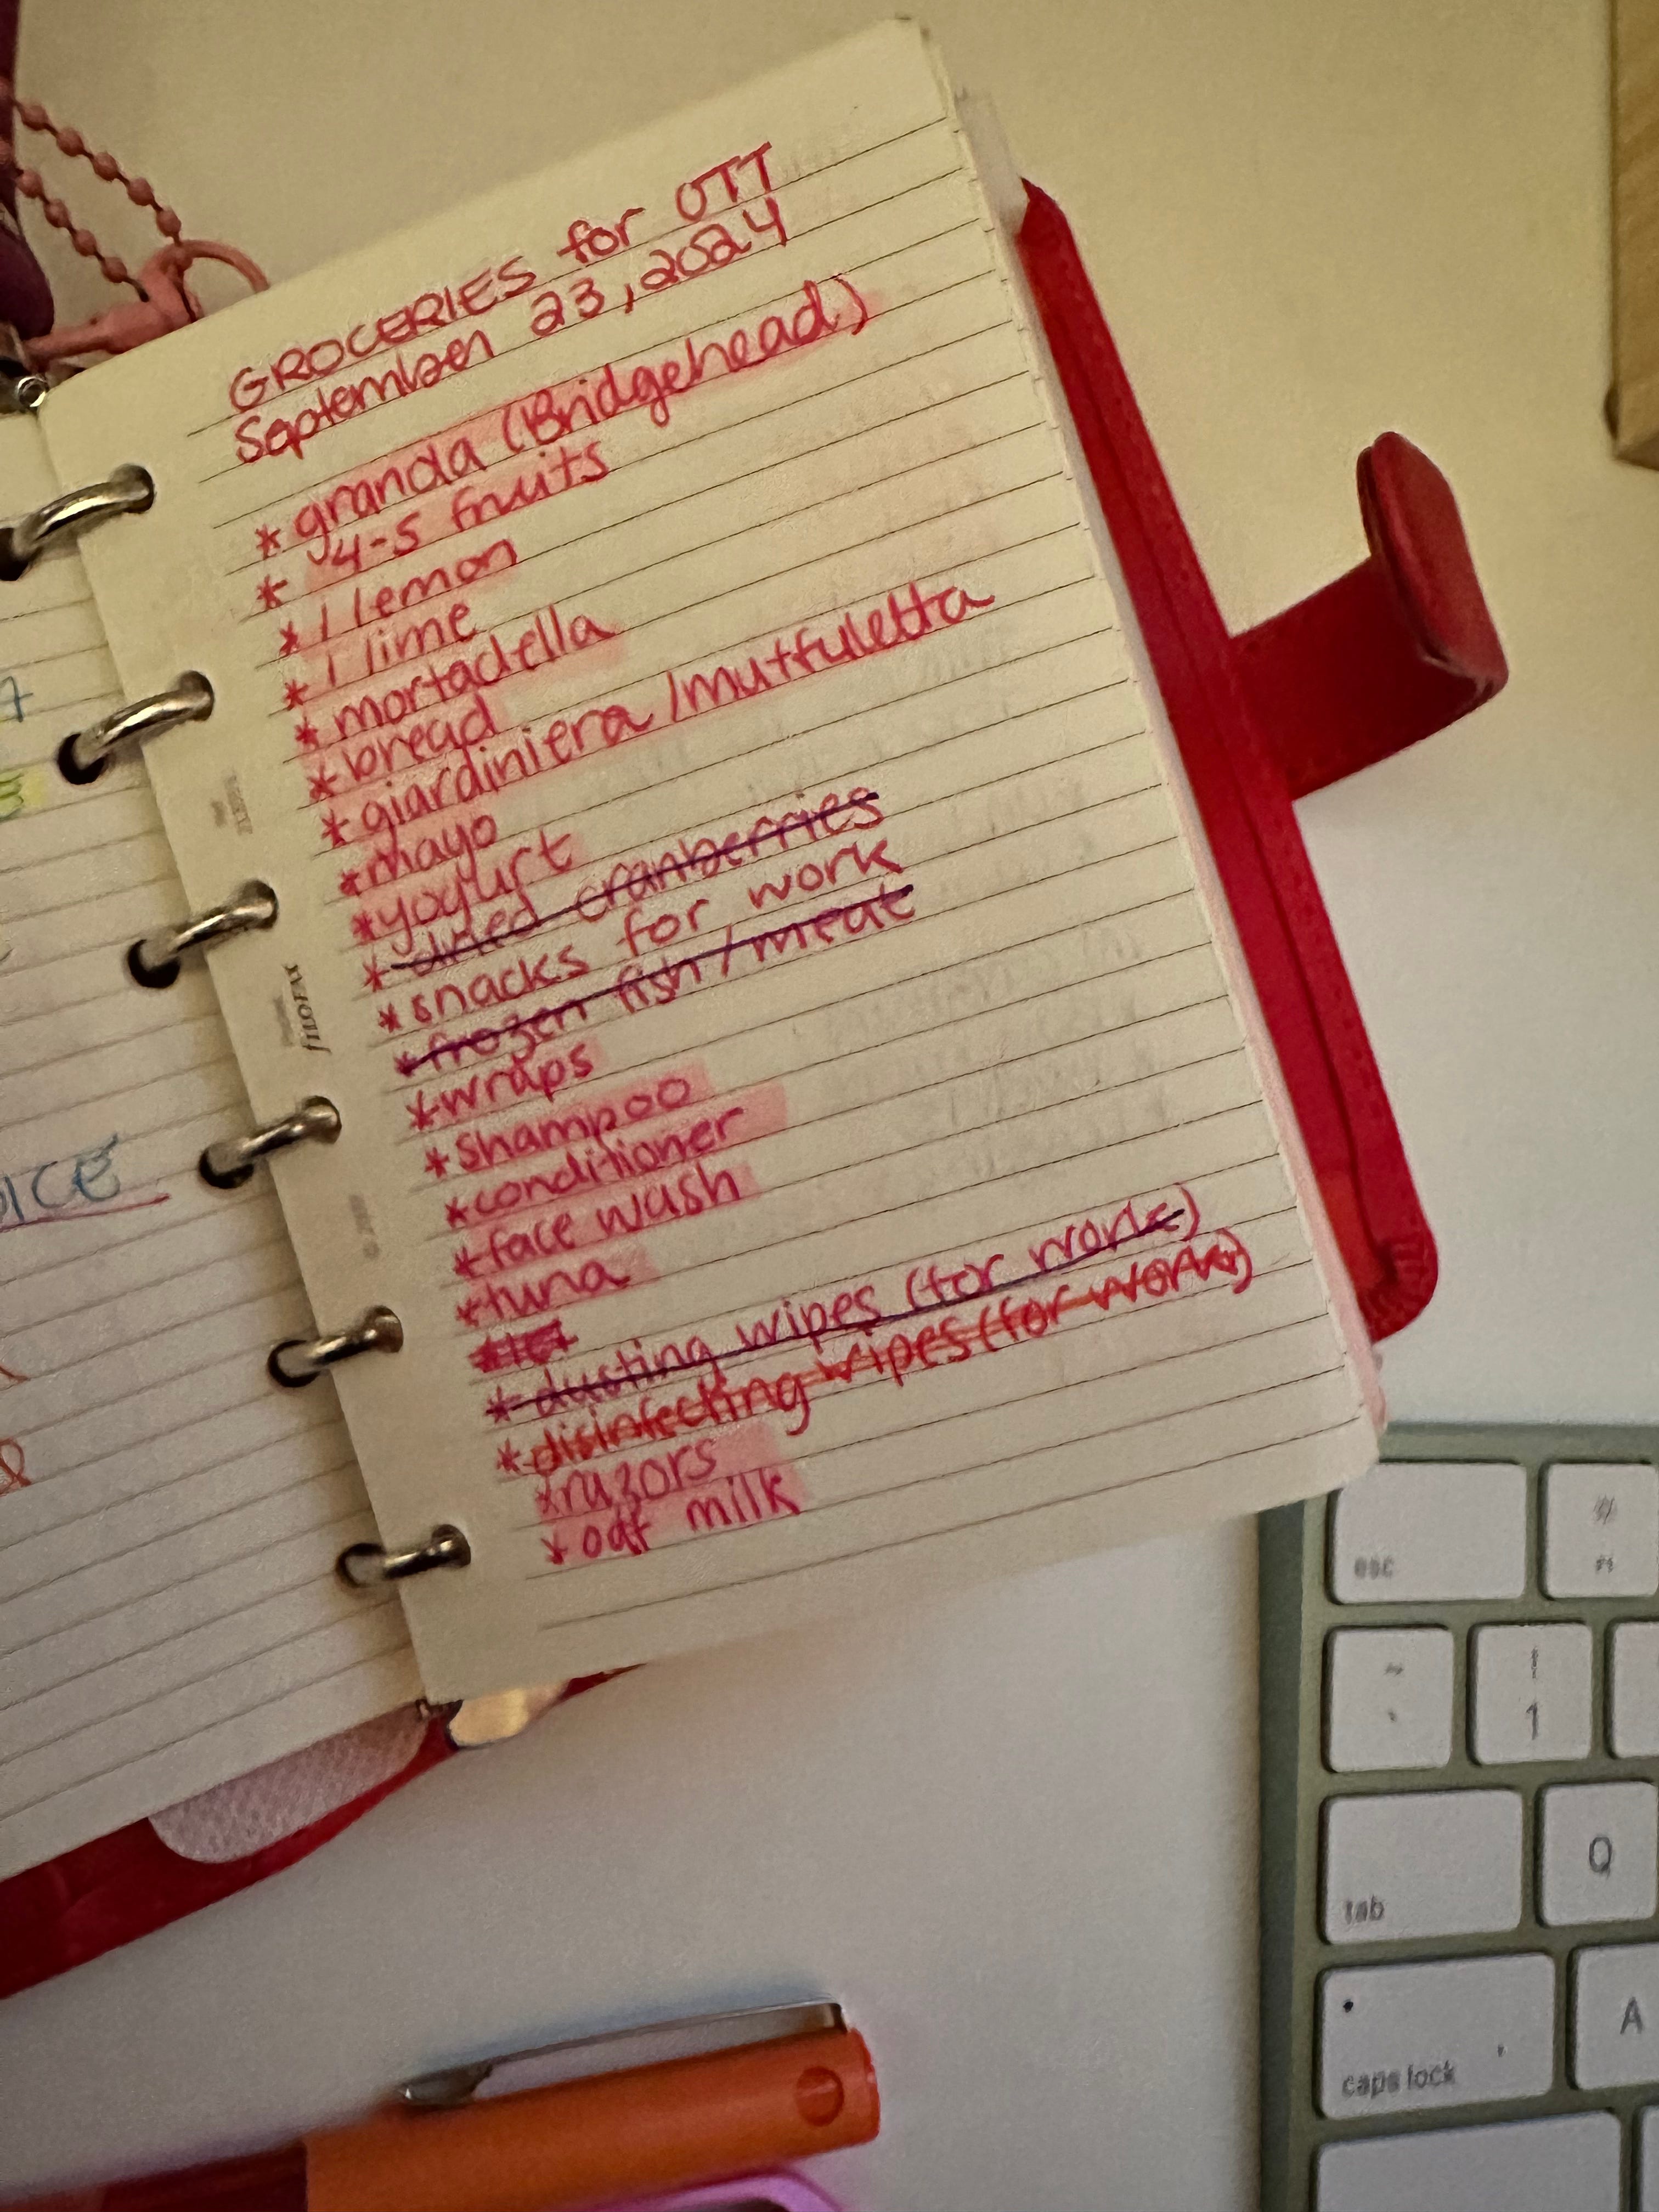 GROCERIES for OTT
September 23, 2024
* granola (Bridgehead)
* 4-5 fruits
* 1 lemon
* 1 lime
* mortadella
* bread
* giardiniera / mutfuletta
* mayo
* yogurt
* dried cranberries
* snacks for work
* frozen fish / meat
* wraps
* shampoo
* conditioner
* face wash
* tuna
* dusting wipes (for work)
* disinfecting wipes (for work)
* razors
* oat milk
filofax
esc
1
tab
Q
caps lock
A